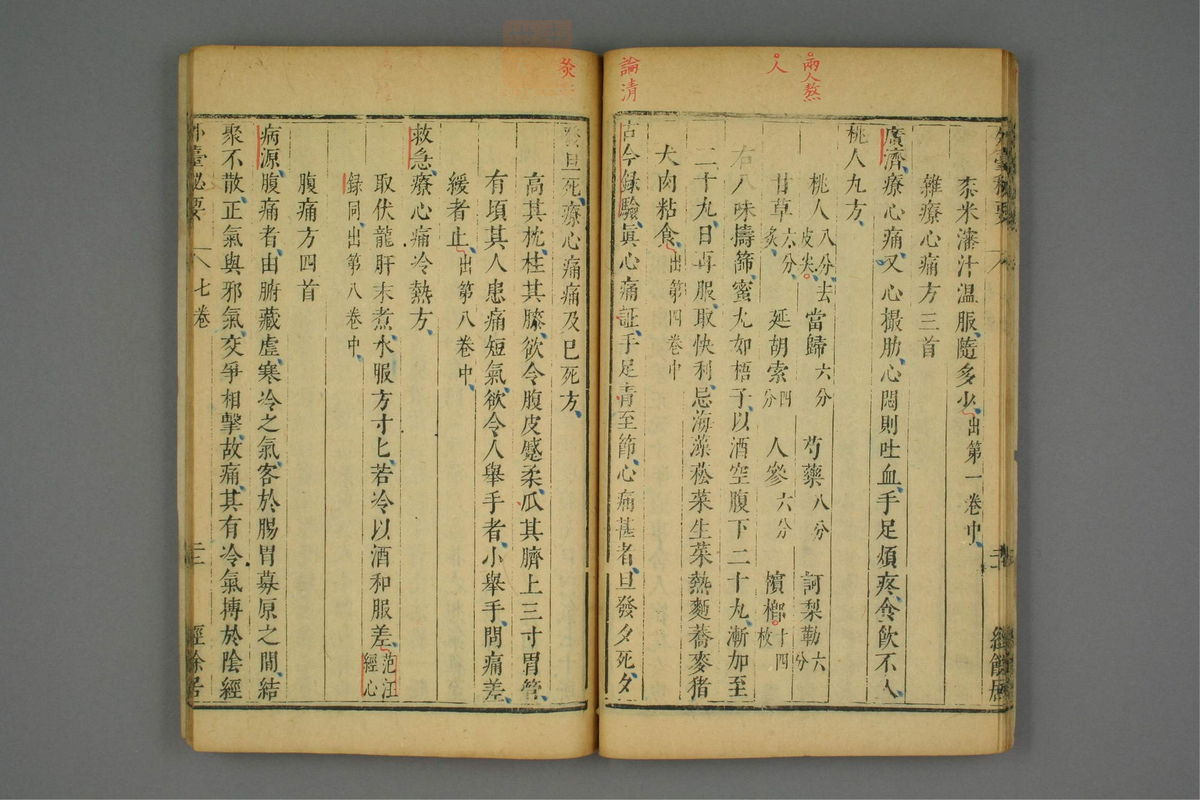 兩人熬
人
論清
桼米瀋汁溫服隨多少出第一卷中
雜療心痛方三首
廣濟療心痛又心撮肋心悶則吐血手足煩疼食飲不入
桃人九方
桃人八分去皮尖 當歸六分 芍藥八分 訶梨勒六分
甘草六分炙 延胡索四分 人參六分 檳榔十四枚
右八味擣篩蜜丸如梧子以酒空腹下二十丸漸加至
二十九日再服取快利忌海藻菘菜生菜熱麵蕎麥猪
犬肉粘食出第四卷中
古今録驗真心痛証手足青至節心痛甚者旦發夕死夕
發旦死療心痛痛及巳死方
高其枕柱其膝欲令腹皮蹙柔瓜其臍上三寸胃管
有頃其人患痛短氣欲令人舉手者小舉手問痛差
緩者止出第八卷中
救急療心痛冷熱方
取伏龍肝末煮水服方寸匕若冷以酒和服差范汪經心
録同出第八卷中
腹痛方四首
病源腹痛者由腑藏虛寒冷之氣客於腸胃募原之間結
聚不散正氣與邪氣交爭相擊故痛其有冷氣搏於陰經
外臺祕要
七卷
二三
經餘居